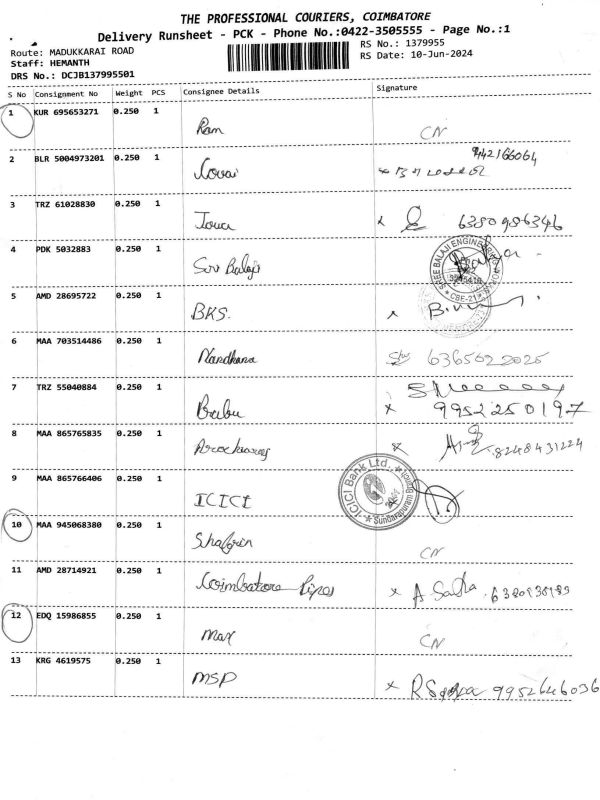 THE PROFESSIONAL COURIERS, COIMBATORE
Delivery Runsheet - PCK - Phone No.:0422-3505555 - Page No.:1
Route: MADUKKARAI ROAD
RS No.: 1379955
Staff: HEMANTH
RS Date: 10-Jun-2024
DRS No.: DCJB137995501
S No Consignment No Weight PCS Consignee Details Signature
1 KUR 695653271 0.250 1 Ram CN
2 BLR 5004973201 0.250 1 Covai
3 TRZ 61028830 0.250 1 6380986346
4 PDK 5032883 0.250 1 Sri Balaji
SREE BALAJI ENGINEERING
CBE-21
5 AMD 28695722 0.250 1 BKS.
6 MAA 703514486 0.250 1 Nandhana 6365622025
7 TRZ 55040884 0.250 1 Babu 9952250197
8 MAA 865765835 0.250 1 8248431224
9 MAA 865766406 0.250 1 ICICI
ICICI Bank Ltd.
Sundarapuram
10 MAA 945068380 0.250 1 CN
11 AMD 28714921 0.250 1 Coimbatore Pipes
12 EDQ 15986855 0.250 1 Max CN
13 KRG 4619575 0.250 1 MSP 9952646036